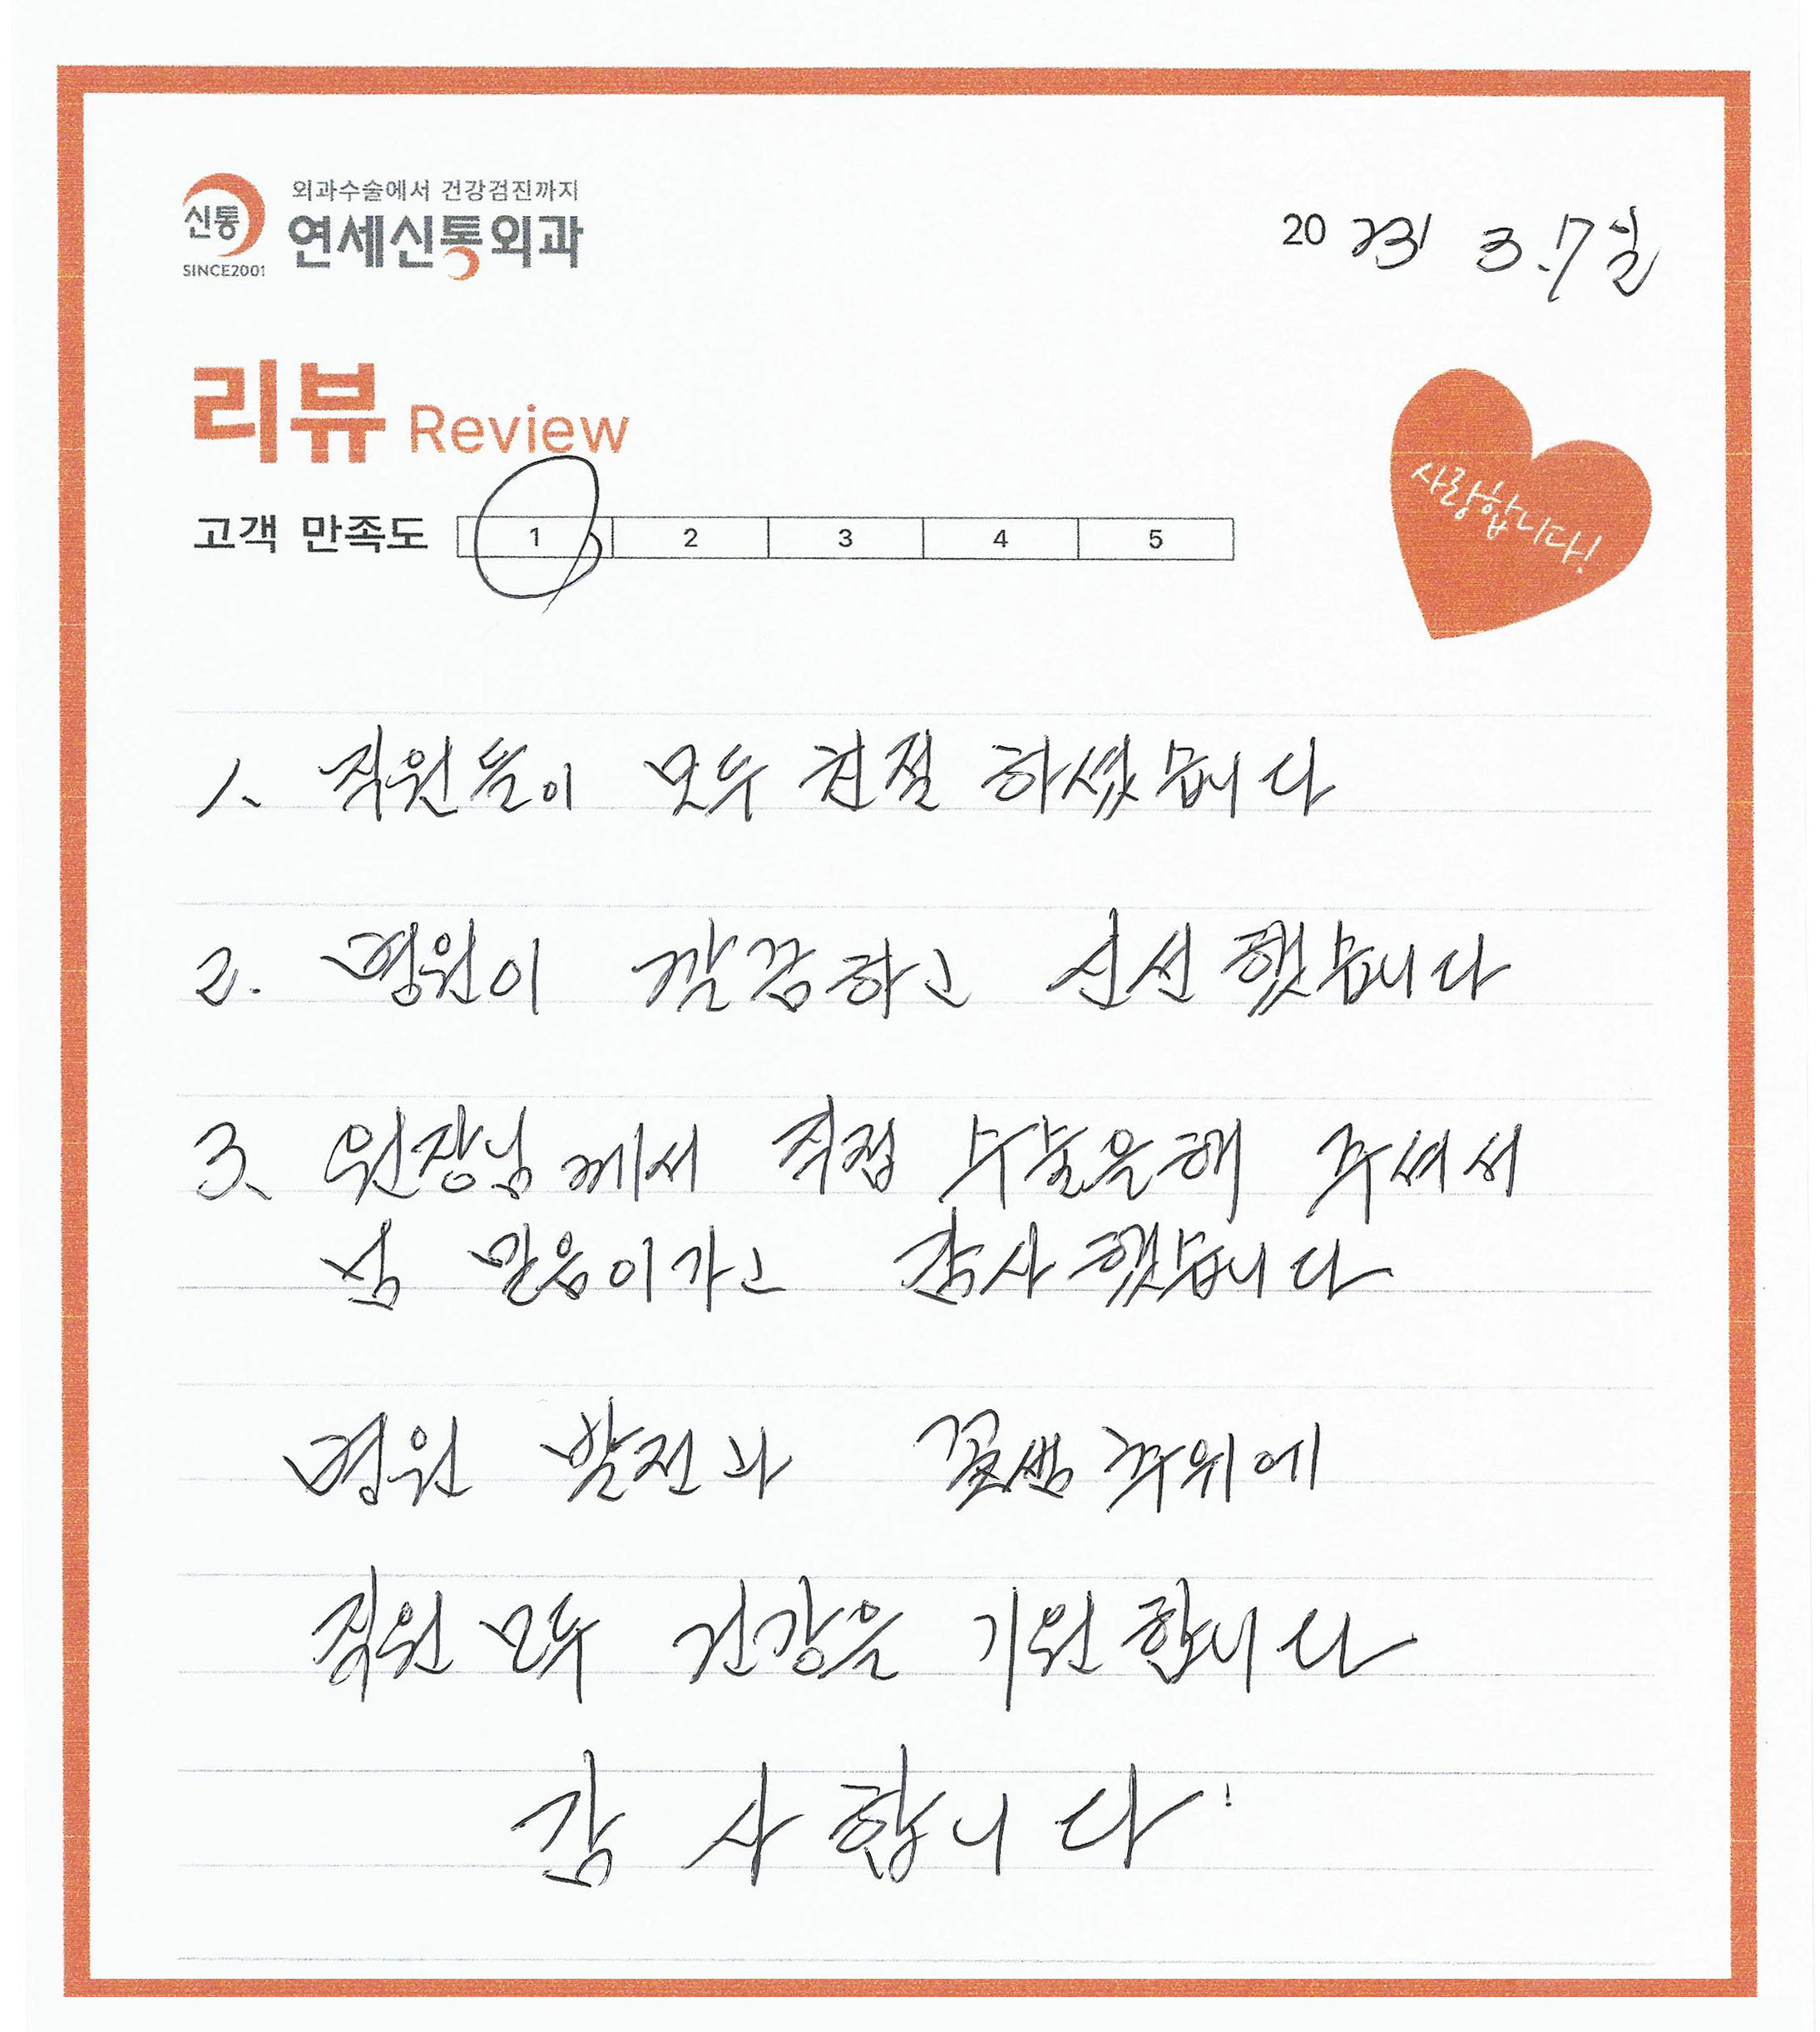 신통
SINCE2001
외과수술에서 건강검진까지
연세신통외과
2023 3.7일
리뷰 Review
고객 만족도 1 2 3 4 5
사랑합니다!
1. 직원들이 모두 친절 하셨습니다
2. 병원이 깔끔하고 신선했습니다
3. 원장님께서 직접 수술을해 주셔서
넘 믿음이가고 감사했습니다
병원 발전과
직원모두 건강을 기원합니다
감사합니다!